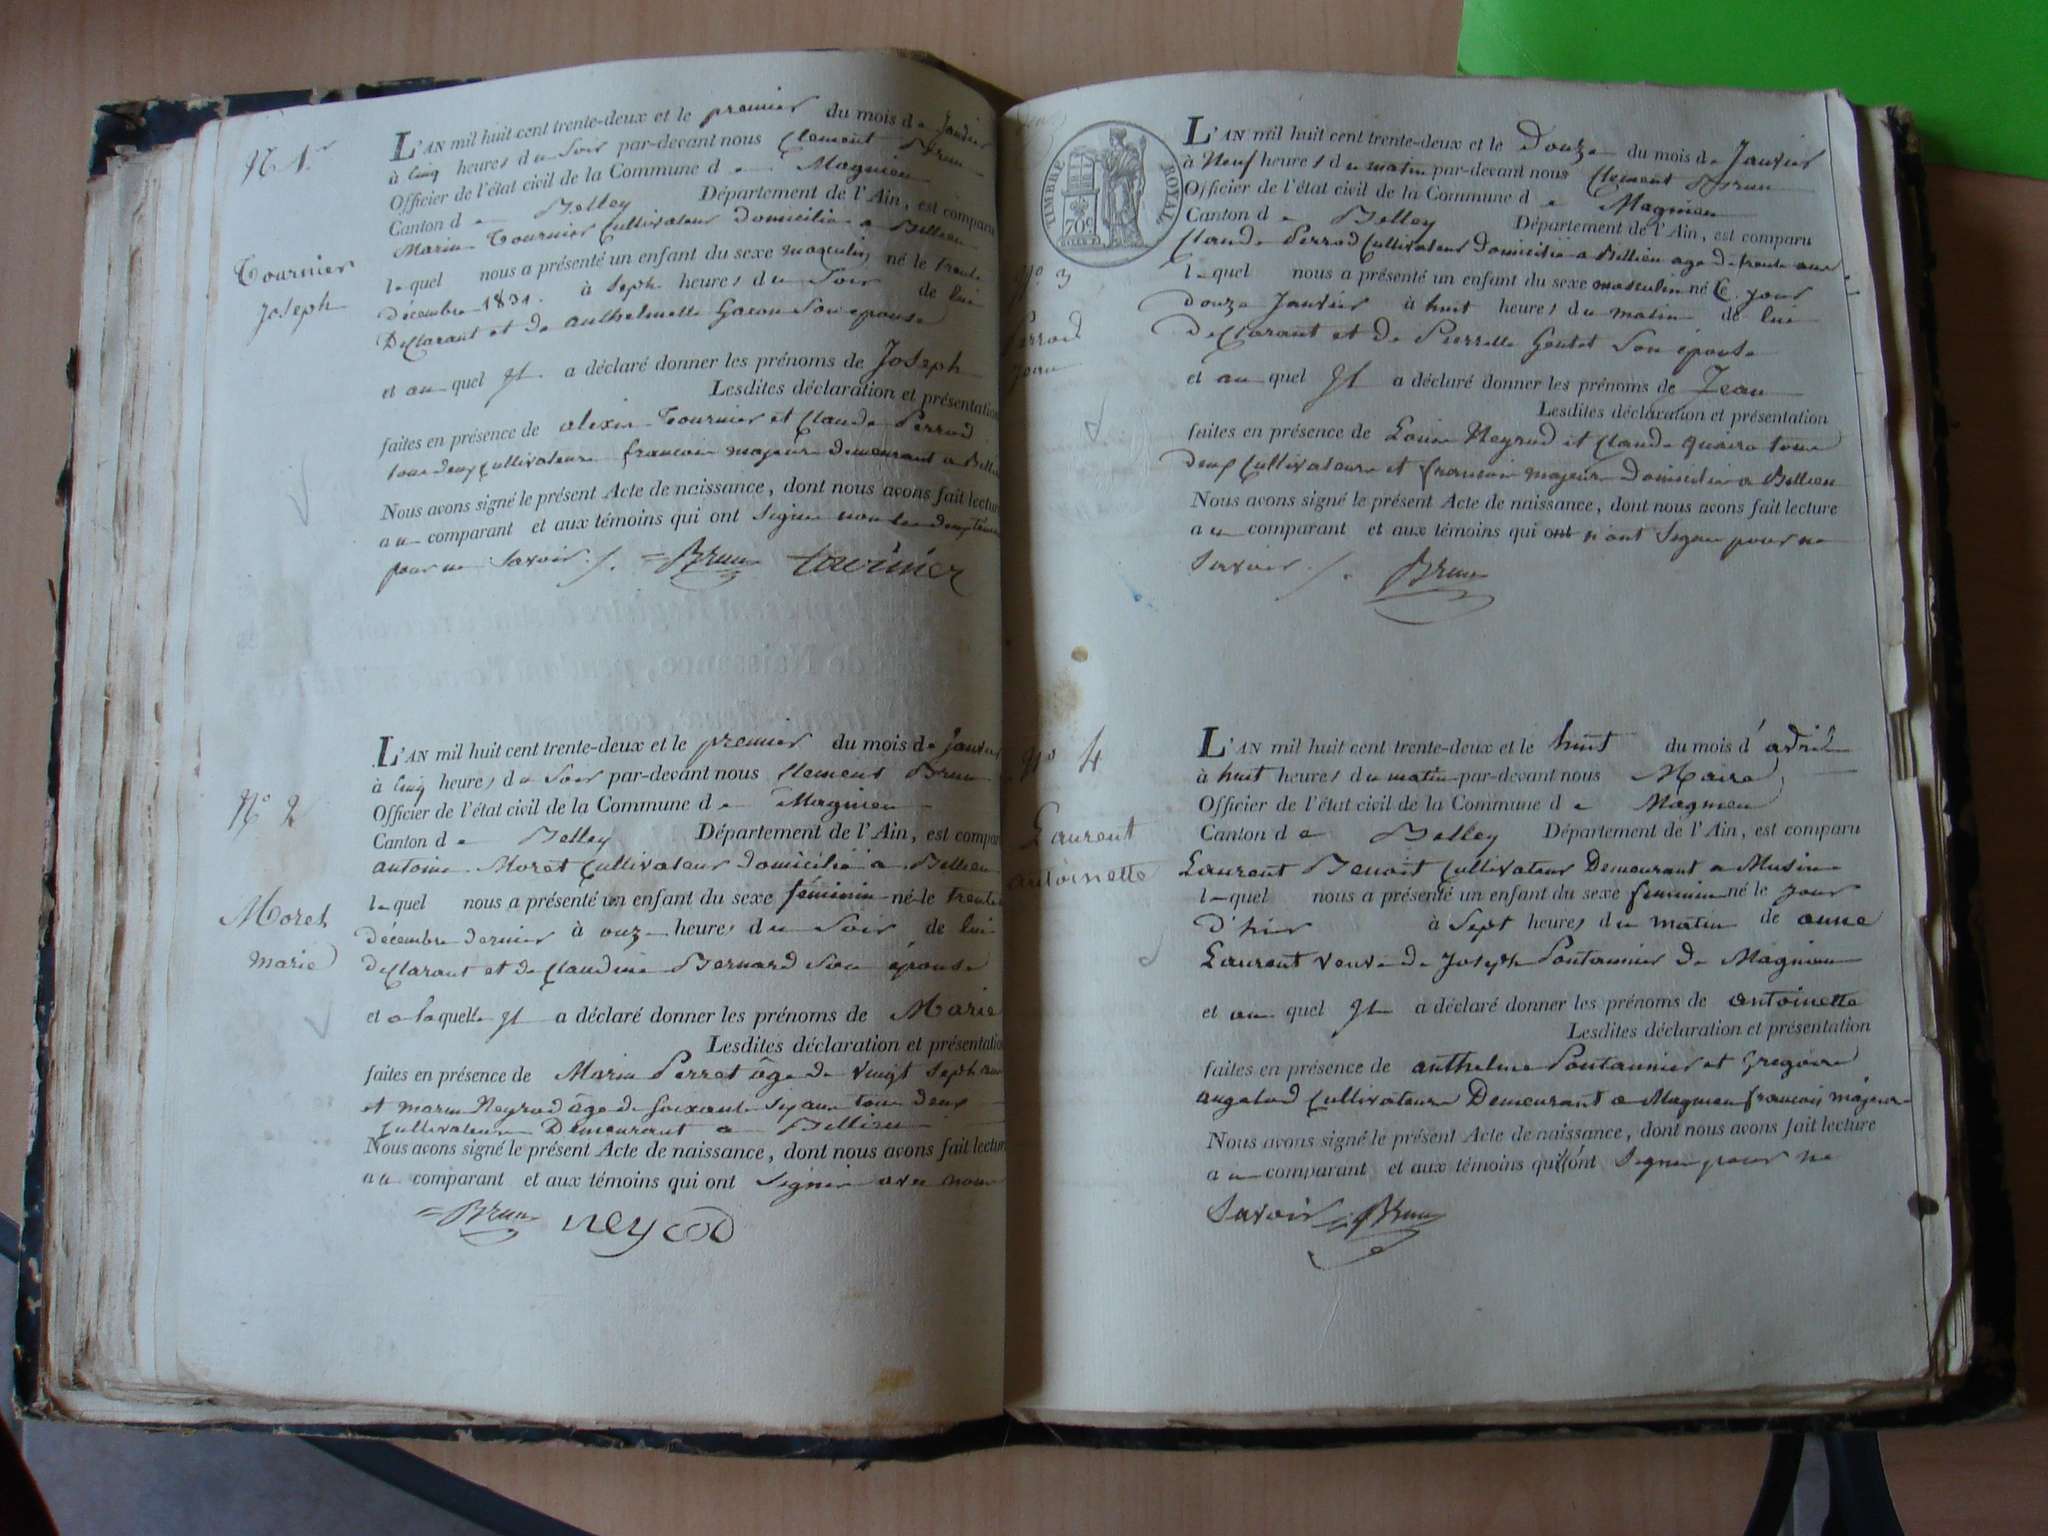 N 1.er
Tournier
Joseph
L'AN mil huit cent trente-deux et le premier du mois de Janvier
à cinq heures du soir par-devant nous Clement Brun
Officier de l'état civil de la Commune de Magnieu
Canton de Belley Département de l'Ain, est comparu
Marin Tournier Cultivateur domicilié a Billieu
lequel nous a présenté un enfant du sexe masculin né le trente
décembre 1831. à Sept heures du Soir de lui
Declarant et de anthelmette Gacon Son épouse
et au quel Il a déclaré donner les prénoms de Joseph
Lesdites déclaration et présentation
faites en présence de alexis Tournier et Claude Perrod
tous deux Cultivateurs francois majeurs demeurant a Billieu
Nous avons signé le présent Acte de naissance, dont nous avons fait lecture
au comparant et aux témoins qui ont Signé non les deux témoins
pour ne Savoir ./. Brun tournier
N° 2
Moret
Marie
L'AN mil huit cent trente-deux et le premier du mois de Janvier
à cinq heures du Soir par-devant nous Clement Brun
Officier de l'état civil de la Commune de Magnieu
Canton de Belley Département de l'Ain, est comparu
antoine Moret Cultivateur domicilié a Billieu
lequel nous a présenté un enfant du sexe féminin né le trente
décembre dernier à onze heures du Soir de lui
declarant et de Claudine Bernard Son épouse
et a laquelle Il a déclaré donner les prénoms de Marie
Lesdites déclaration et présentation
faites en présence de Marin Perret âgé de vingt Sept ans
et marin Neyrod âgé de Soixante Six ans tous deux
Cultivateurs Demeurant a Billieu
Nous avons signé le présent Acte de naissance, dont nous avons fait lecture
au comparant et aux témoins qui ont Signér avec nous
Brun neyrod
TIMBRE ROYAL
70c
N° 3
Perrod
Jean
L'AN mil huit cent trente-deux et le Douze du mois de Janvier
à Neuf heures du matin par-devant nous Clement Brun
Officier de l'état civil de la Commune de Magnieu
Canton de Belley Département de l'Ain, est comparu
Claude Perrod Cultivateur Domicilié a Billieu age de trente ans
lequel nous a présenté un enfant du sexe masculin né Ce jour
douze Janvier à huit heures du matin de lui
declarant et de Pierrette Gentet Son épouse
et au quel Il a déclaré donner les prénoms de Jean
Lesdites déclaration et présentation
faites en présence de Louis Neyrod et Claude tous
deux Cultivateurs et francois majeur Domicilié a Billieu
Nous avons signé le présent Acte de naissance, dont nous avons fait lecture
au comparant et aux témoins qui ont n'ont Signé pour ne
Savoir ./. Brun
N° 4
Laurent
antoinette
L'AN mil huit cent trente-deux et le huit du mois d'avril
à huit heures du matin par-devant nous Maire
Officier de l'état civil de la Commune de Magnieu
Canton de Belley Département de l'Ain, est comparu
Laurent Benoit Cultivateur Demeurant a Musin
lequel nous a présenté un enfant du sexe feminin né le jour
D'hier à Sept heures du matin de anne
Laurent veuve de Joseph Pontannier de Magnieu
et au quel Il a déclaré donner les prénoms de antoinette
Lesdites déclaration et présentation
faites en présence de anthelme Pontannier et Gregoire
Cultivateurs Demeurant a Magnieu francois majeurs
Nous avons signé le présent Acte de naissance, dont nous avons fait lecture
au comparant et aux témoins qui ont Signé pour ne
Savoir Brun